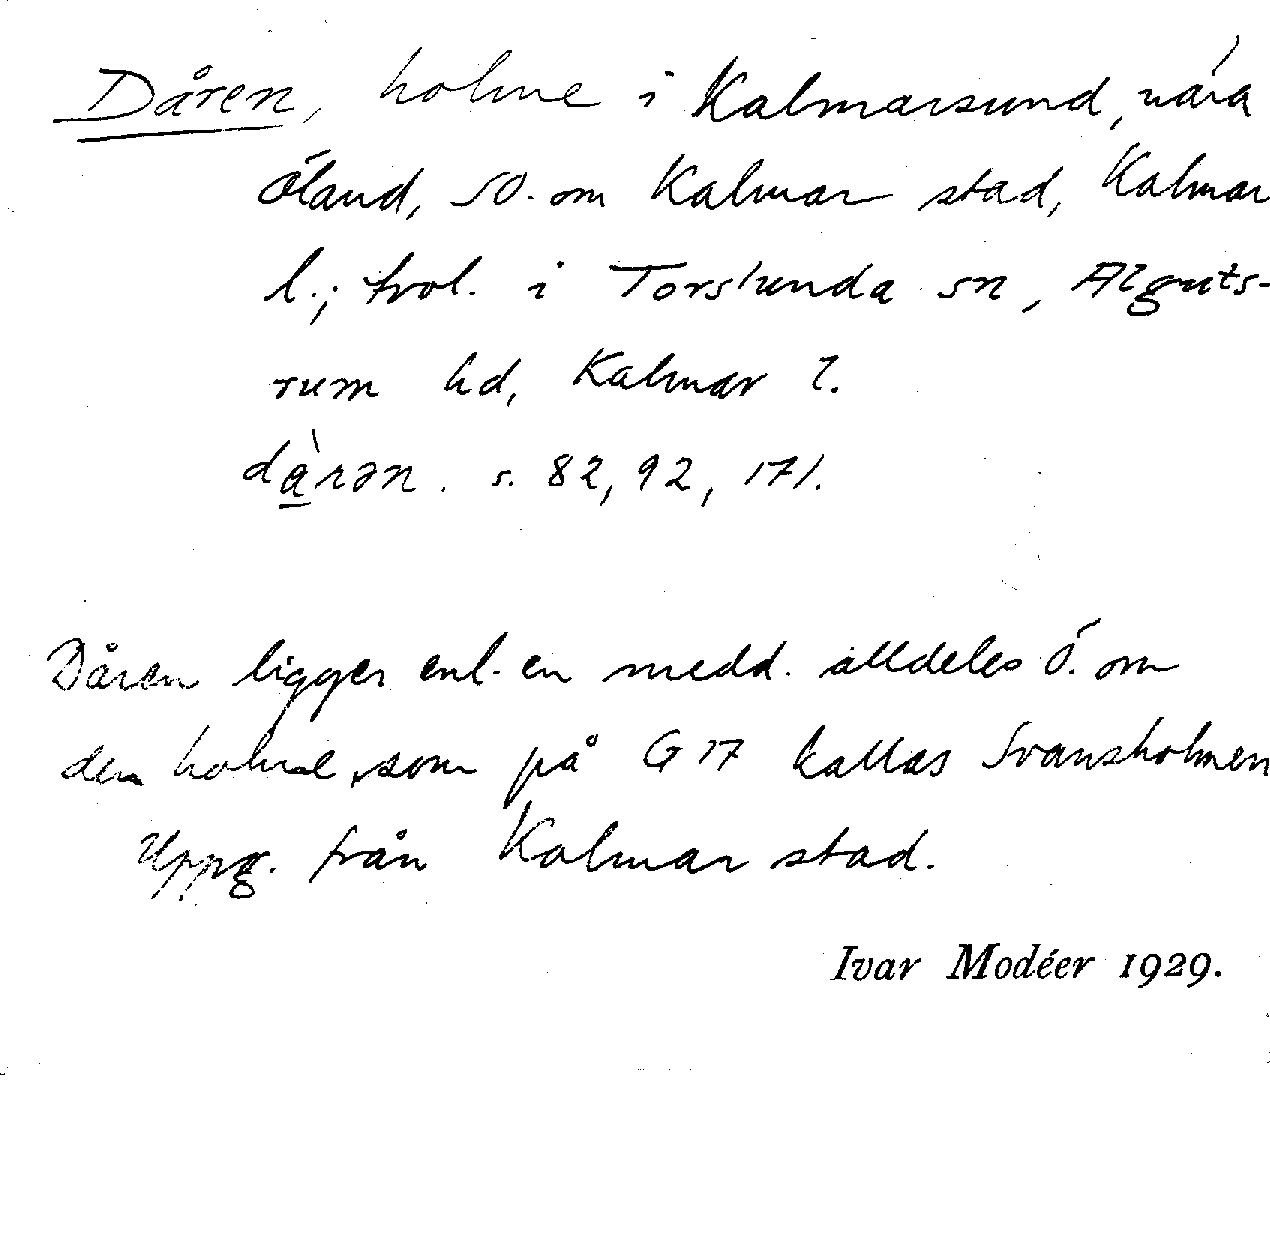 Dåren, holme i Kalmarsund, nära
Öland, SO. om Kalmar stad, Kalmar
l.; trol. i Torslunda sn, Alguts-
rum hd, Kalmar l.
dà̱rən. s. 82, 92, 171.
Dåren ligger enl. en medd. alldeles Ö. om
den holme, som på G 17 kallas Svansholmen
Uppg. från Kalmar stad.
Ivar Modéer 1929.